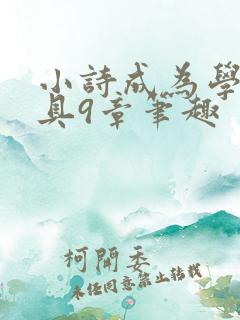 小詩成為學
具9章筆趣
柯開委
未经同意禁止转载